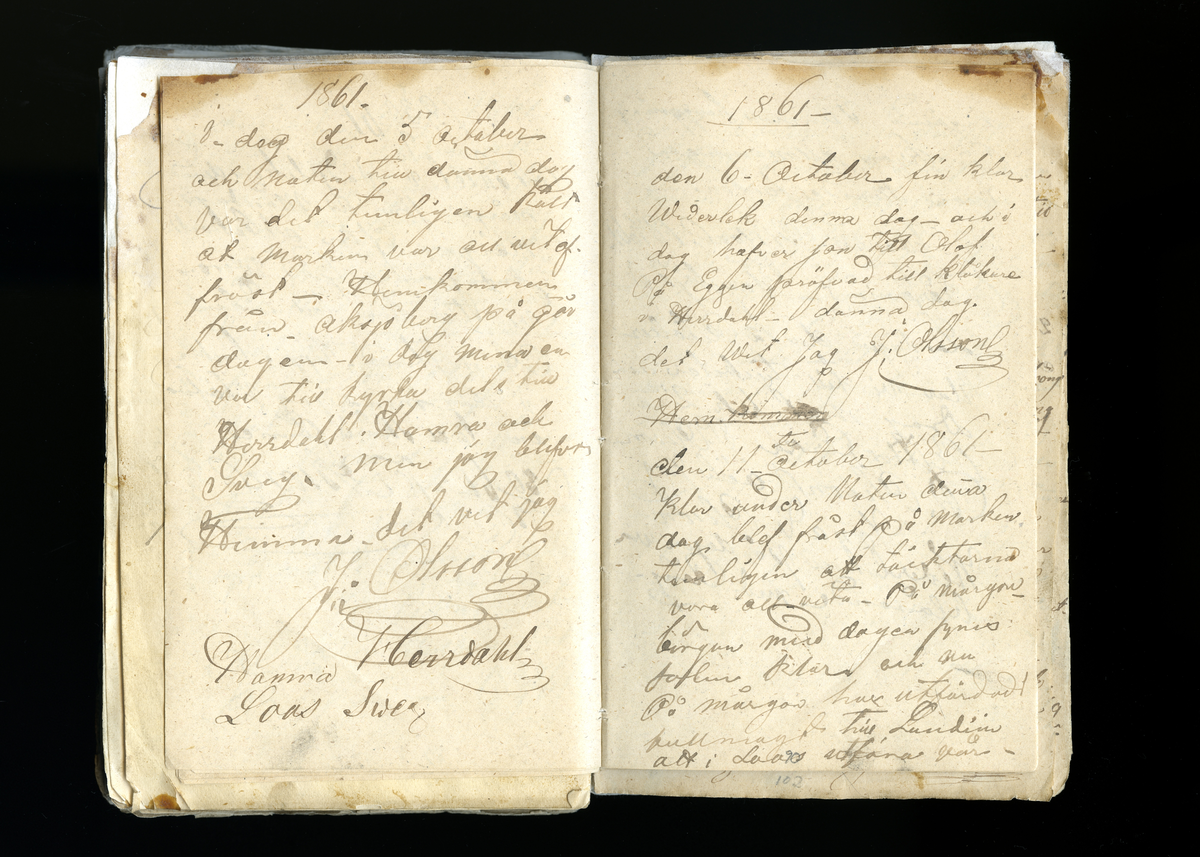 1861-
i dag den 5 October
och Naten till danna dag
var det temligen kalt
at Marken var all vit af
fröst - Hemkommen
från aksjöberg på går
dagen - i dag mina en
var till kyrka dels till
Herrdahl. Hamra och
Sveg. men jag blifver
Himma - det vet jag
J. Olsson
i
Herrdahl
Hamra
Loos Sveg
1861-
den 6 - October fin klar
Widerlek denna dag - och i
dag hafver Jon till Olof
På Eggen pröfvad till klokare
i Herrdahl - danna dag.
det Wet Jag J. Olsson
p
Hem kommen
den 11 - October 1861 -
Klar under Naten denna
dag blef fråst på Marken
temligen att täckterna
vora all vita - På mårgon
börgan med dagen synes
solen klar och nu
På mårgon har utfärdad
fullmagt till Lundin
att i Loos utföra vår -
102